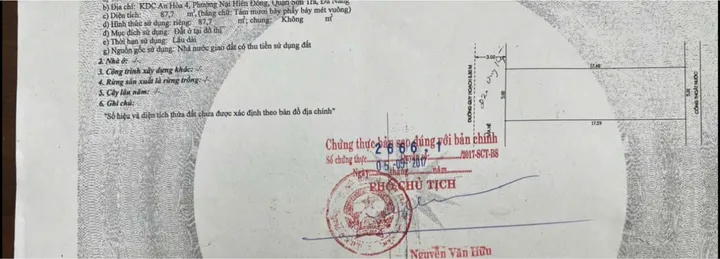 b) Địa chỉ: KDC An Hòa 4, Phường Nại Hiên Đông, Quận Sơn Trà, Đà Nẵng
c) Diện tích: 87,7 m², (bằng chữ: Tám mươi bảy phẩy bảy mét vuông)
d) Hình thức sử dụng: riêng: 87,7 m²; chung: Không m²
đ) Mục đích sử dụng: Đất ở tại đô thị
e) Thời hạn sử dụng: Lâu dài
g) Nguồn gốc sử dụng: Nhà nước giao đất có thu tiền sử dụng đất
2. Nhà ở: -/-
3. Công trình xây dựng khác: -/-
4. Rừng sản xuất là rừng trồng: -/-
5. Cây lâu năm: -/-
6. Ghi chú:
"Số hiệu và diện tích thửa đất chưa được xác định theo bản đồ địa chính"
3.00
17.48
17.59
5.00
5.00
ĐƯỜNG QUY HOẠCH
VỈA HÈ
CỐNG THOÁT NƯỚC
Chứng thực bản sao đúng với bản chính
Số chứng thực 2666.1 /2017-SCT-BS
Ngày 05-09-2017 tháng năm
PHÓ CHỦ TỊCH
Nguyễn Văn Hữu